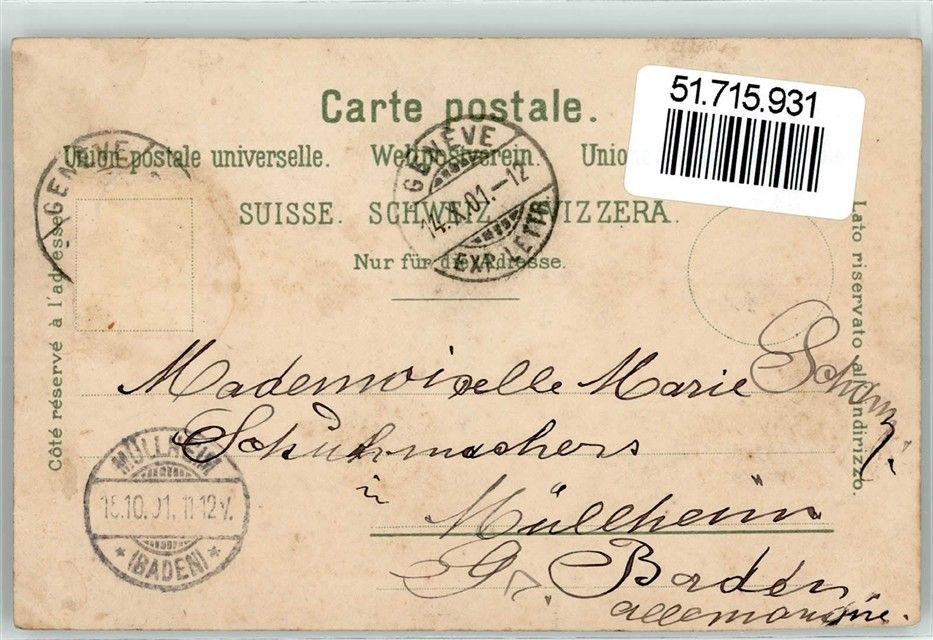 51.715.931
Carte postale.
Union postale universelle. Weltpostverein. Unione
SUISSE. SCHWEIZ. SVIZZERA.
Nur für die Adresse.
Côté réservé à l'adresse
Lato riservato all'indirizzo.
GENÈVE
GENÈVE
14.X.01.-12
EXP. LETTR.
Mademoiselle Marie Schanz
Schuhmachers
in
Müllheim
Gr. Baden
allemagne.
MÜLLHEIM
15.10.01. 11-12V.
* (BADEN) *